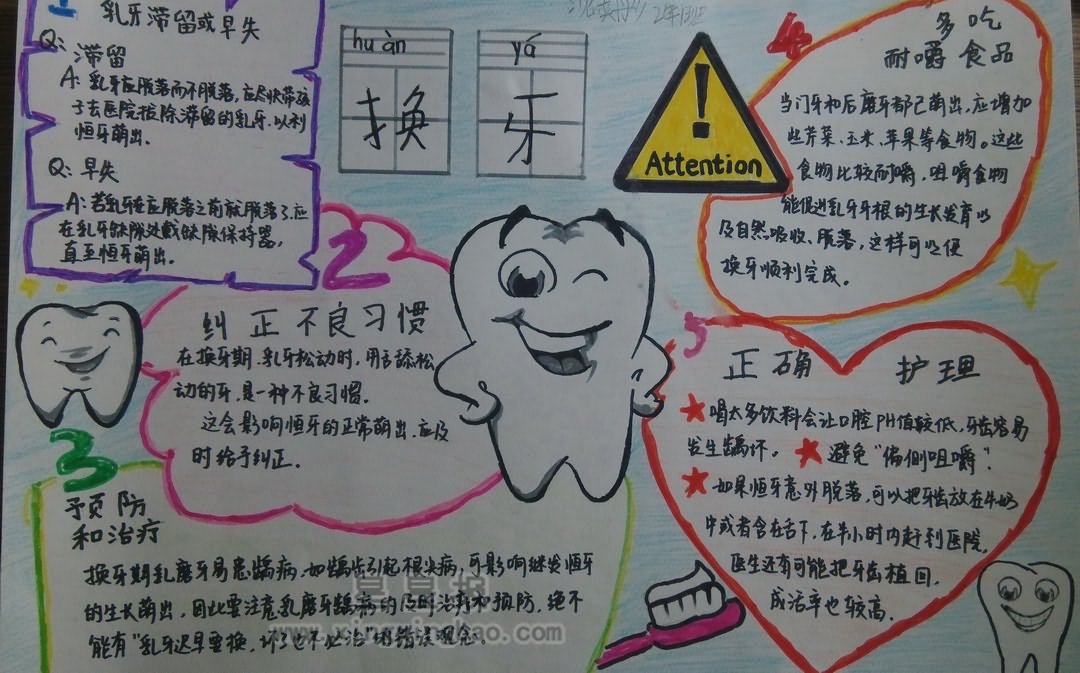 1
乳牙滞留或早失
Q: 滞留
A: 乳牙应脱落而不脱落,应尽快带孩
子去医院拔除滞留的乳牙,以利
恒牙萌出.
Q: 早失
A: 若乳牙在应脱落之前就脱落了,应
在乳牙缺隙处戴缺隙保持器,
直至恒牙萌出.
huàn yá
换 牙
2年13班
Attention
4
多吃
耐嚼食品
当门牙和后磨牙都已萌出,应增加
些芹菜、玉米、苹果等食物。这些
食物比较耐嚼,咀嚼食物
能促进乳牙牙根的生长发育以
及自然吸收、脱落,这样可以使
换牙顺利完成。
2
纠正不良习惯
在换牙期,乳牙松动时,用舌舔松
动的牙,是一种不良习惯.
这会影响恒牙的正常萌出,应及
时给予纠正.
3
预防
和治疗
换牙期乳磨牙易患龋病,如龋齿引起根尖病,可影响继发恒牙
的生长萌出,因此要注意乳磨牙龋病的及时治疗和预防,绝不
能有“乳牙迟早要换,坏了也不必治”的错误观念。
星星报
www.xingxingbao.com
5
正确 护理
★喝太多饮料会让口腔PH值较低,牙齿容易
发生龋坏。 ★避免“偏侧咀嚼”.
★如果恒牙意外脱落,可以把牙齿放在牛奶
中或者含在舌下,在半小时内赶到医院,
医生还有可能把牙齿植回,
成活率也较高.